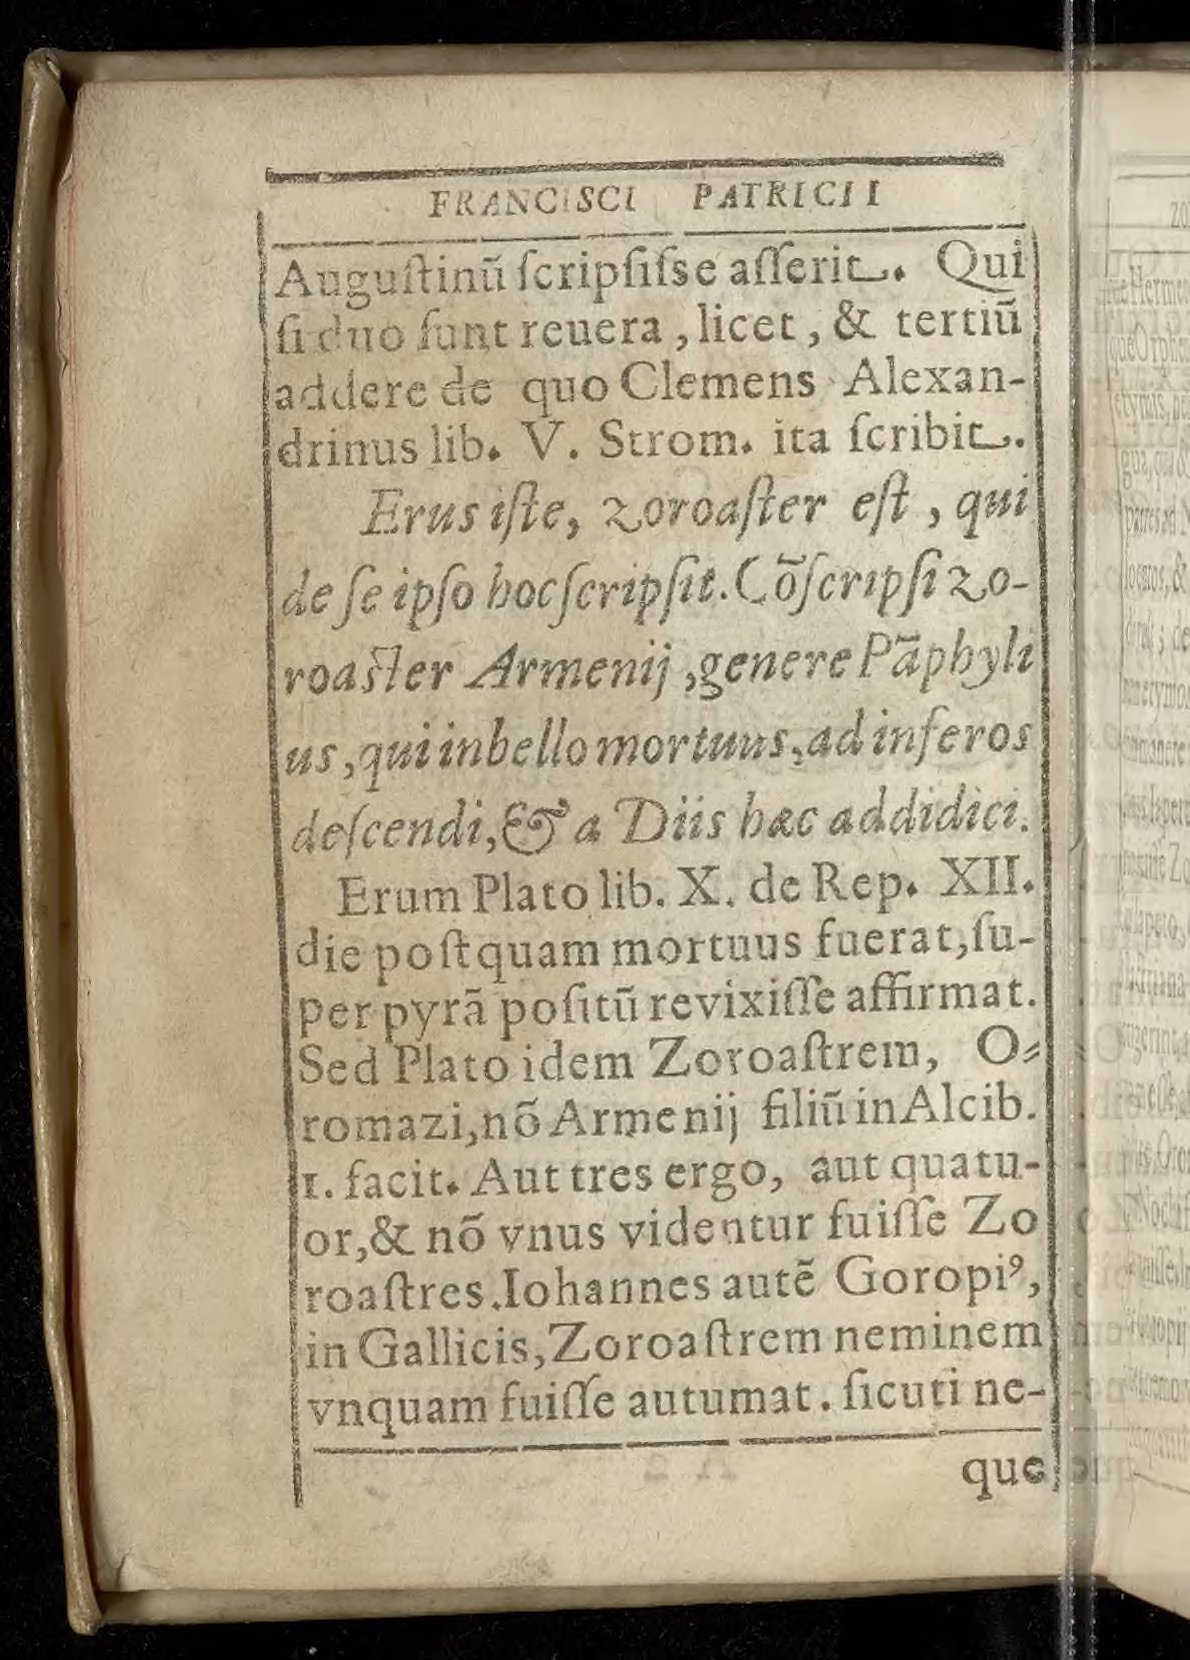 FRANCISCI PATRICII
Auguſtinū ſcripſiſse aſſerit. Qui
ſi duo ſunt reuera, licet, & tertiū
addere de quo Clemens Alexan-
drinus lib. V. Strom. ita ſcribit.
Erus iſte, zoroaſter eſt, qui
de ſe ipſo hoc ſcripſit. Cōſcripſi zo-
roaſter Armenij, genere Pāphyli
us, qui in bello mortuus, ad inferos
deſcendi, & a Diis hæc addidici.
Erum Plato lib. X. de Rep. XII.
die poſtquam mortuus fuerat, ſu-
per pyrā poſitū revixiſſe affirmat.
Sed Plato idem Zoroaſtrem, O⸗
romazi, nō Armenij filiū in Alcib.
1. facit. Aut tres ergo, aut quatu-
or, & nō vnus videntur fuiſſe Zo
roaſtres. Iohannes autē Goropiꝰ,
in Gallicis, Zoroaſtrem neminem
vnquam fuiſſe autumat. ſicuti ne-
que